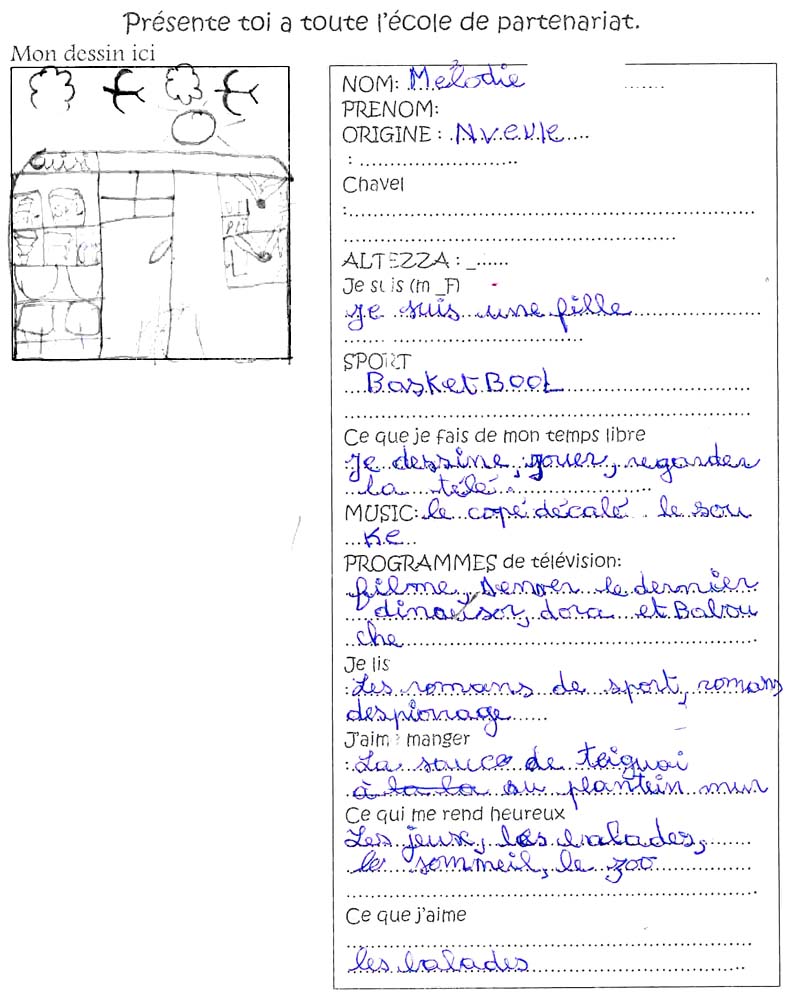 Présente toi a toute l'école de partenariat.
Mon dessin ici
NOM: Mélodie
PRENOM:
ORIGINE : N.v.e.v.le
:
Chavel
:
ALTEZZA : _
Je suis (m _F)
je suis une fille
SPORT
BasketBooL
Ce que je fais de mon temps libre
je dessine, jouer, regarder
la télé.
MUSIC: le copé décalé. le sou
ke
PROGRAMMES de télévision:
filme, Denver le dernier
dinausor, dora et Babou
che
Je lis
:Les romans de sport, romans
despionage
J'aime manger
:La sauce de teiguai
à la la au plantein mur
Ce qui me rend heureux
Les jeux, les balades,
le sommeil, le zoo
Ce que j'aime
les balades